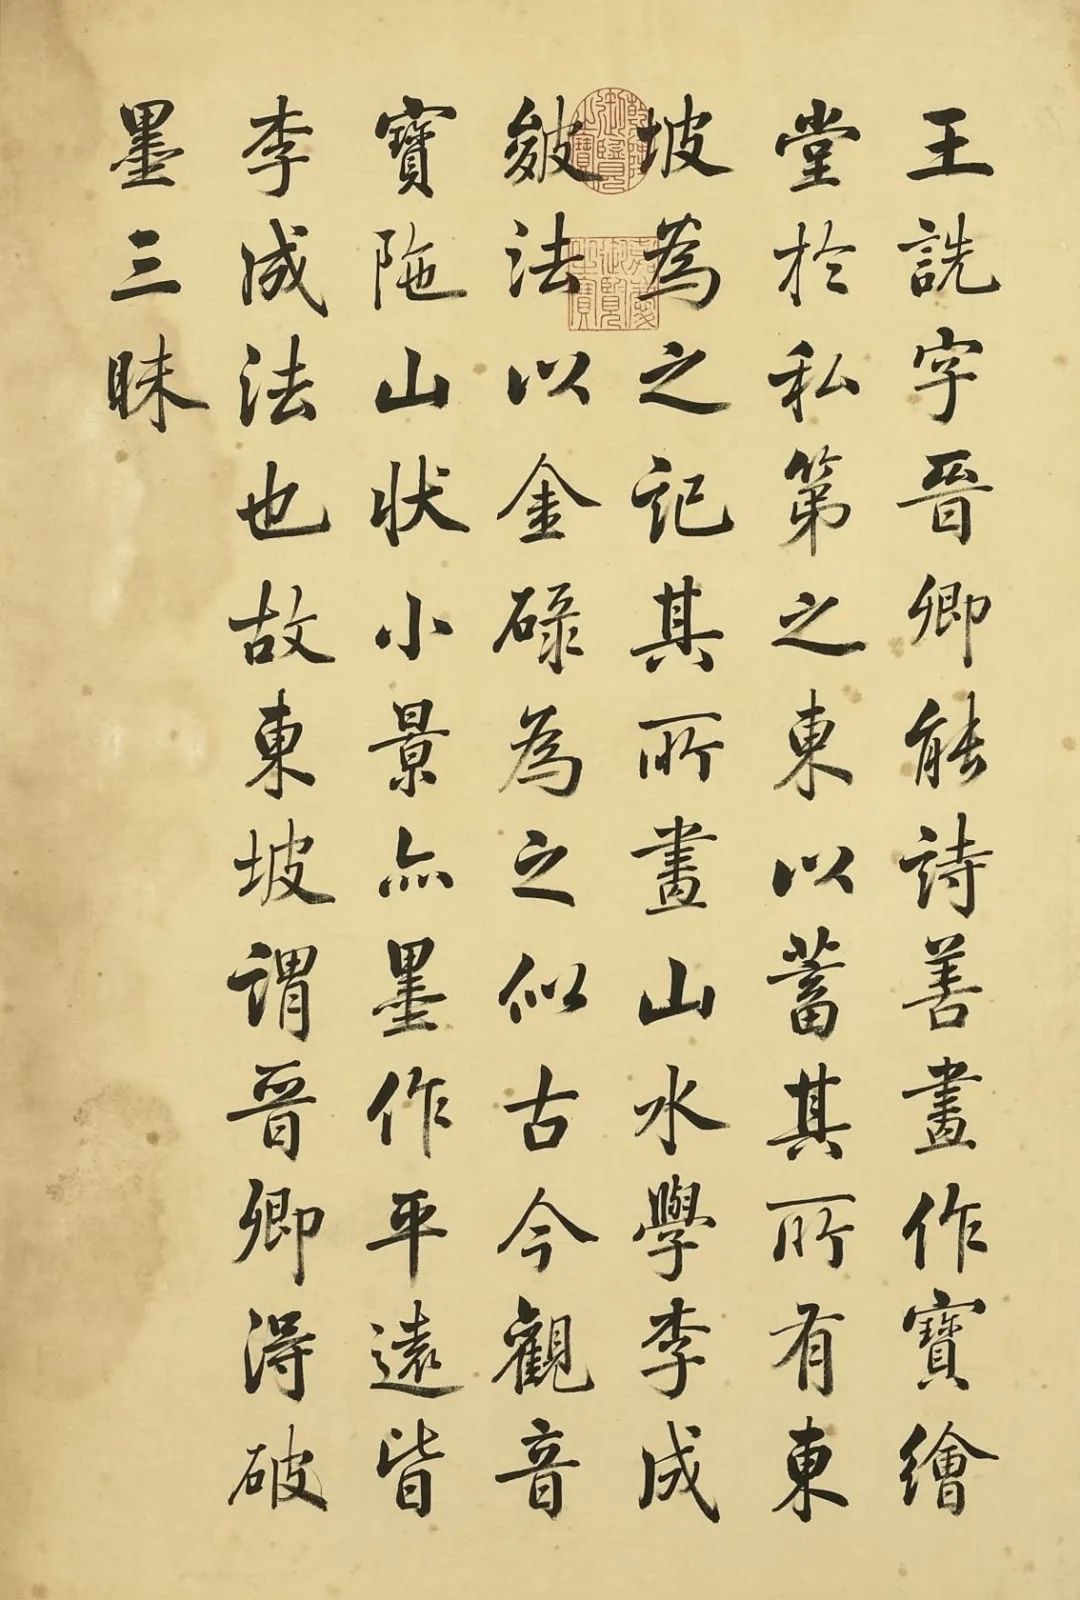 王詵字晉卿能詩善畫作寶繪
堂於私第之東以蓄其所有東
坡為之記其所畫山水學李成
皴法以金碌為之似古今觀音
寶陁山狀小景亦墨作平遠皆
李成法也故東坡謂晉卿得破
墨三昧
乾隆御覽之寶
嘉慶御覽之寶